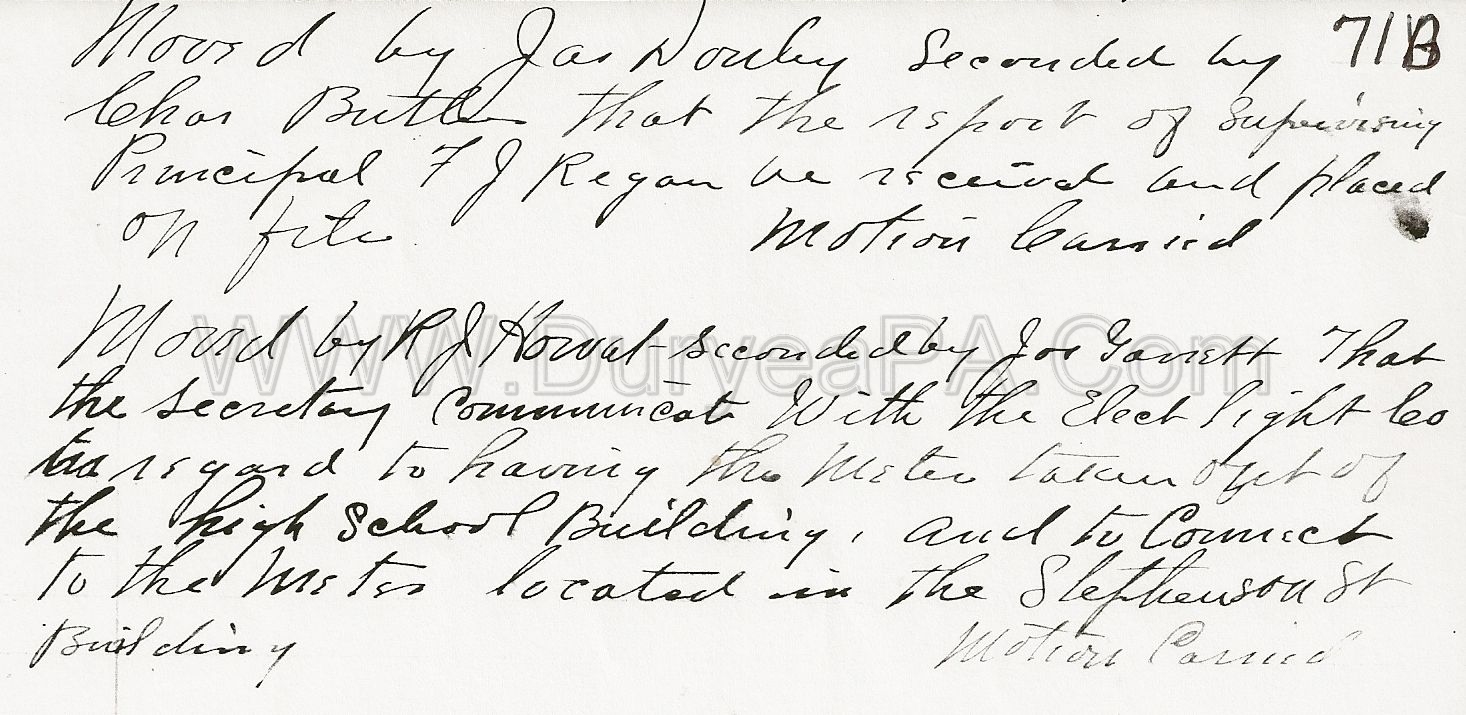 Moved by Jas Donley Seconded by 71B
Chas Butler that the report of Supervising
Principal F J Regan be received and placed
on file. Motion Carried
Moved by R J Howat seconded by Jos Garrett That
the secretary communicate With the Elect light Co
in regard to having the Meter taken out of
the high School Building, and to Connect
to the Meter located in the Stephenson St
Building Motion Carried
WWW.DuryeaPA.Com